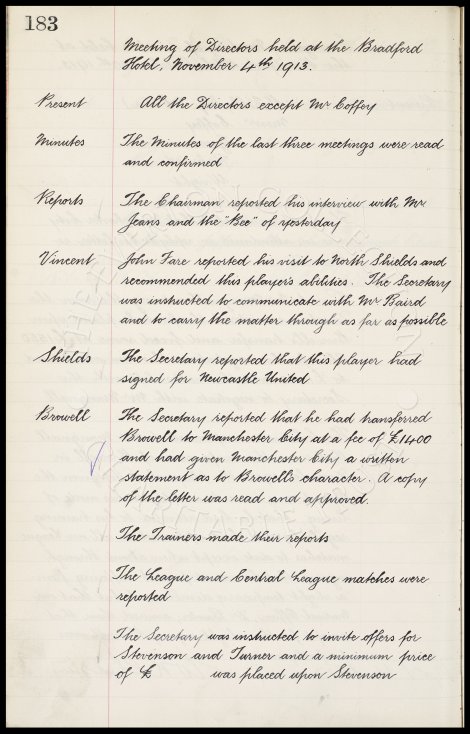 183
Meeting of Directors held at the Bradford
Hotel, November 4th 1913.
Present All the Directors except Mr Coffey
Minutes The Minutes of the last three meetings were read
and confirmed
Reports The Chairman reported his interview with Mr
Jeans and the "Bee" of yesterday
Vincent John Fare reported his visit to North Shields and
recommended this players abilities. The Secretary
was instructed to communicate with Mr Baird
and to carry the matter through as far as possible
Shields The Secretary reported that this player had
signed for Newcastle United
Browell The Secretary reported that he had transferred
Browell to Manchester City at a fee of £1400
and had given Manchester City a written
statement as to Browell's character. A copy
of the letter was read and approved.
The Trainers made their reports
The League and Central League matches were
reported
The Secretary was instructed to invite offers for
Stevenson and Turner and a minimum price
of £ was placed upon Stevenson